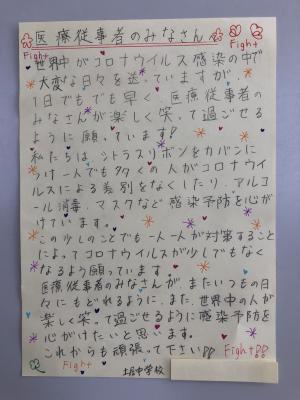 医療従事者のみなさんへ
Fight
Fight
世界中がコロナウイルス感染の中で
大変な日々を送っていますが、
1日でもでも早く、医療従事者の
みなさんが楽しく笑って過ごせる
ように願っています!
私たちは、シトラスリボンをカバンに
つけ一人でも多くの人がコロナウイ
ルスによる差別をなくしたり、アルコ
ール消毒、マスクなど感染予防を心が
けています。
この少しのことでも一人一人が対策すること
によってコロナウイルスが少しでもなく
なるよう願っています。
医療従事者のみなさんが、またいつもの日
々にもどれるように、また、世界中の人が
楽しく笑って過ごせるように感染予防を
心がけたいと思います。
これからも頑張って下さい!! Fight!!
Fight
中学校